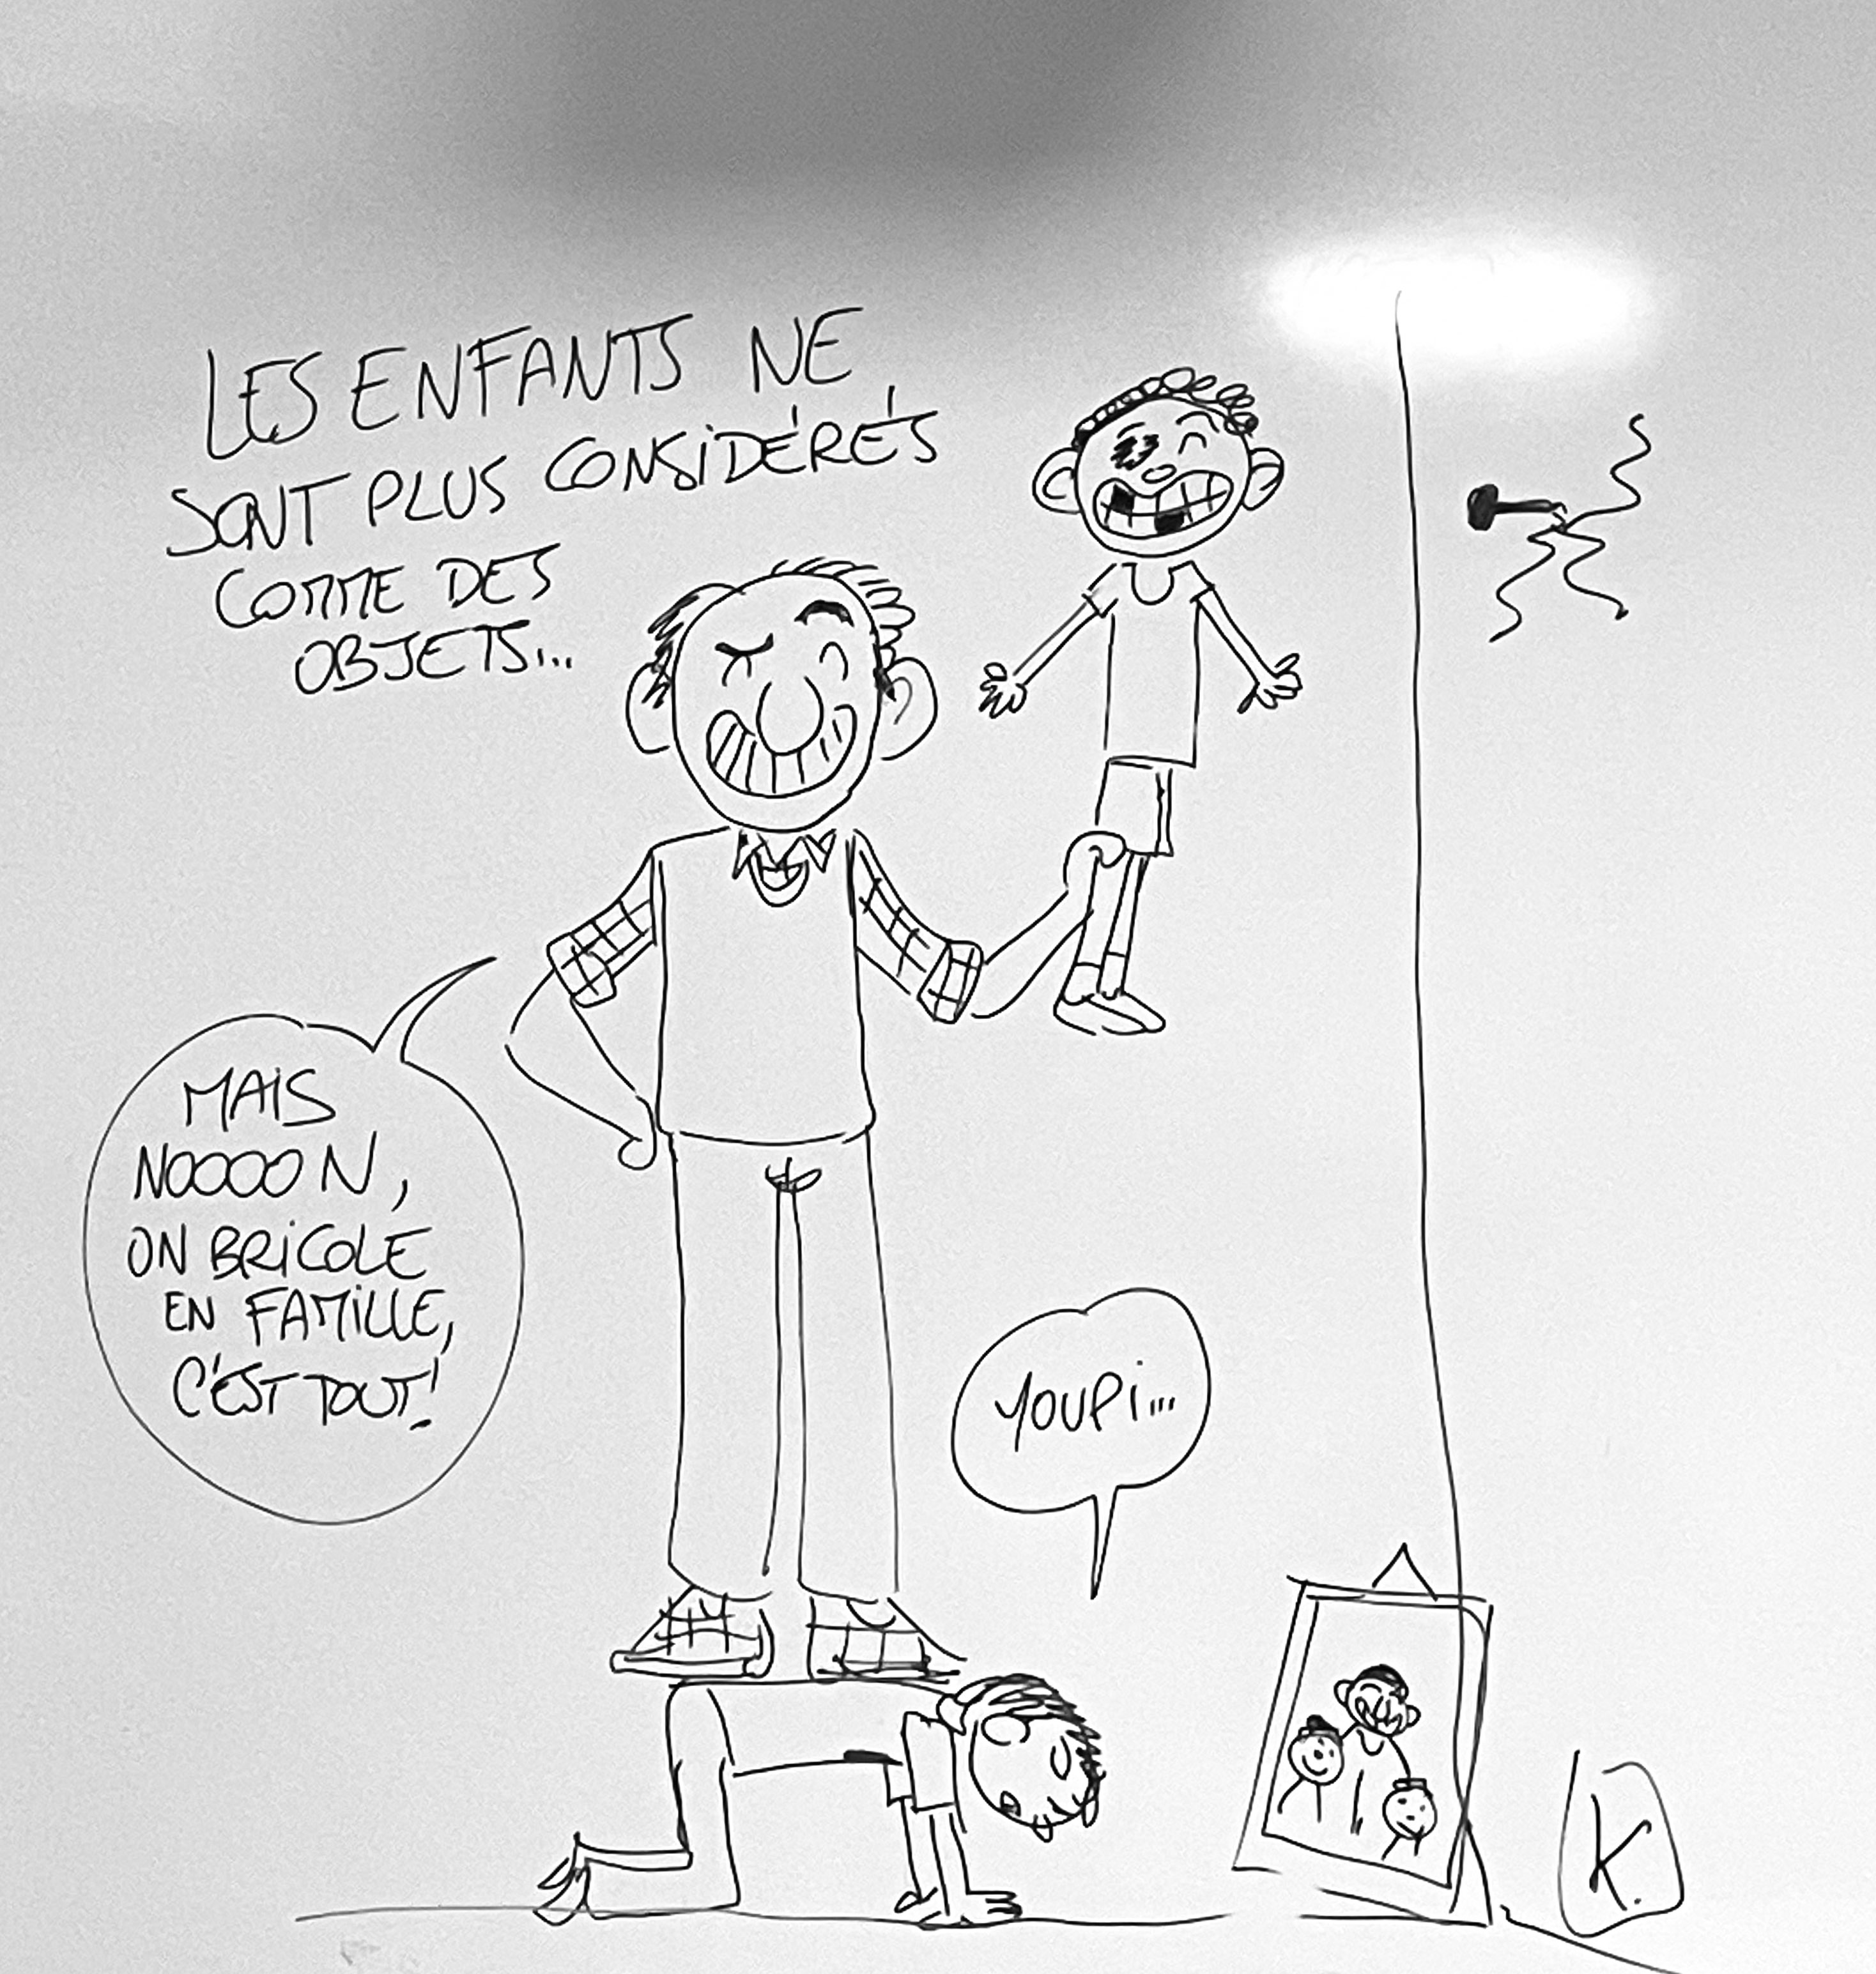 LES ENFANTS NE
SONT PLUS CONSIDÉRÉS
COMME DES
OBJETS...
MAIS
NOOOON,
ON BRICOLE
EN FAMILLE,
C'EST TOUT!
YOUPI...
K.